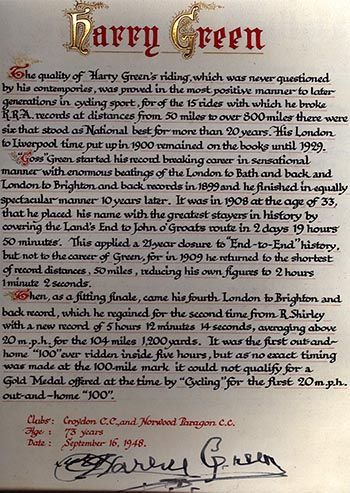 Harry Green
The quality of Harty Green's riding, which was never questioned
by his contempories, was proved in the most positive manner to later
generations in cycling sport, for of the 15 rides with which he broke
R.R.A. records at distances from 50 miles to over 800 miles there were
six that stood as National best for more than 20 years. His London
to Liverpool time put up in 1900 remained on the books until 1929.
"Goss" Green started his record breaking career in sensational
manner with enormous beatings of the London to Bath and back and
London to Brighton and back records in 1899 and he finished in equally
spectacular manner 10 years later. It was in 1908 at the age of 33,
that he placed his name with the greatest stayers in history by
covering the Land's End to John o'Groats route in 2 days 19 hours
50 minutes. This applied a 21-year closure to "End-to-End" history,
but not to the career of Green, for in 1909 he returned to the shortest
of record distances, 50 miles, reducing his own figures to 2 hours
1 minute 2 seconds.
Then, as a fitting finale, came his fourth London to Brighton and
back record, which he regained for the second time from R. Shirley
with a new record of 5 hours 12 minutes 14 seconds, averaging above
20 m.p.h. for the 104 miles 1,200 yards. It was the first out-and-
home "100" ever ridden inside five hours, but as no exact timing
was made at the 100-mile mark it could not qualify for a
Gold Medal offered at the time by "Cycling" for the first 20 m.p.h.
out-and-home "100".
Clubs: Croydon C.C., and Norwood Paragon C.C.
Age: 73 years
Date: September 16, 1948.
Harry Green